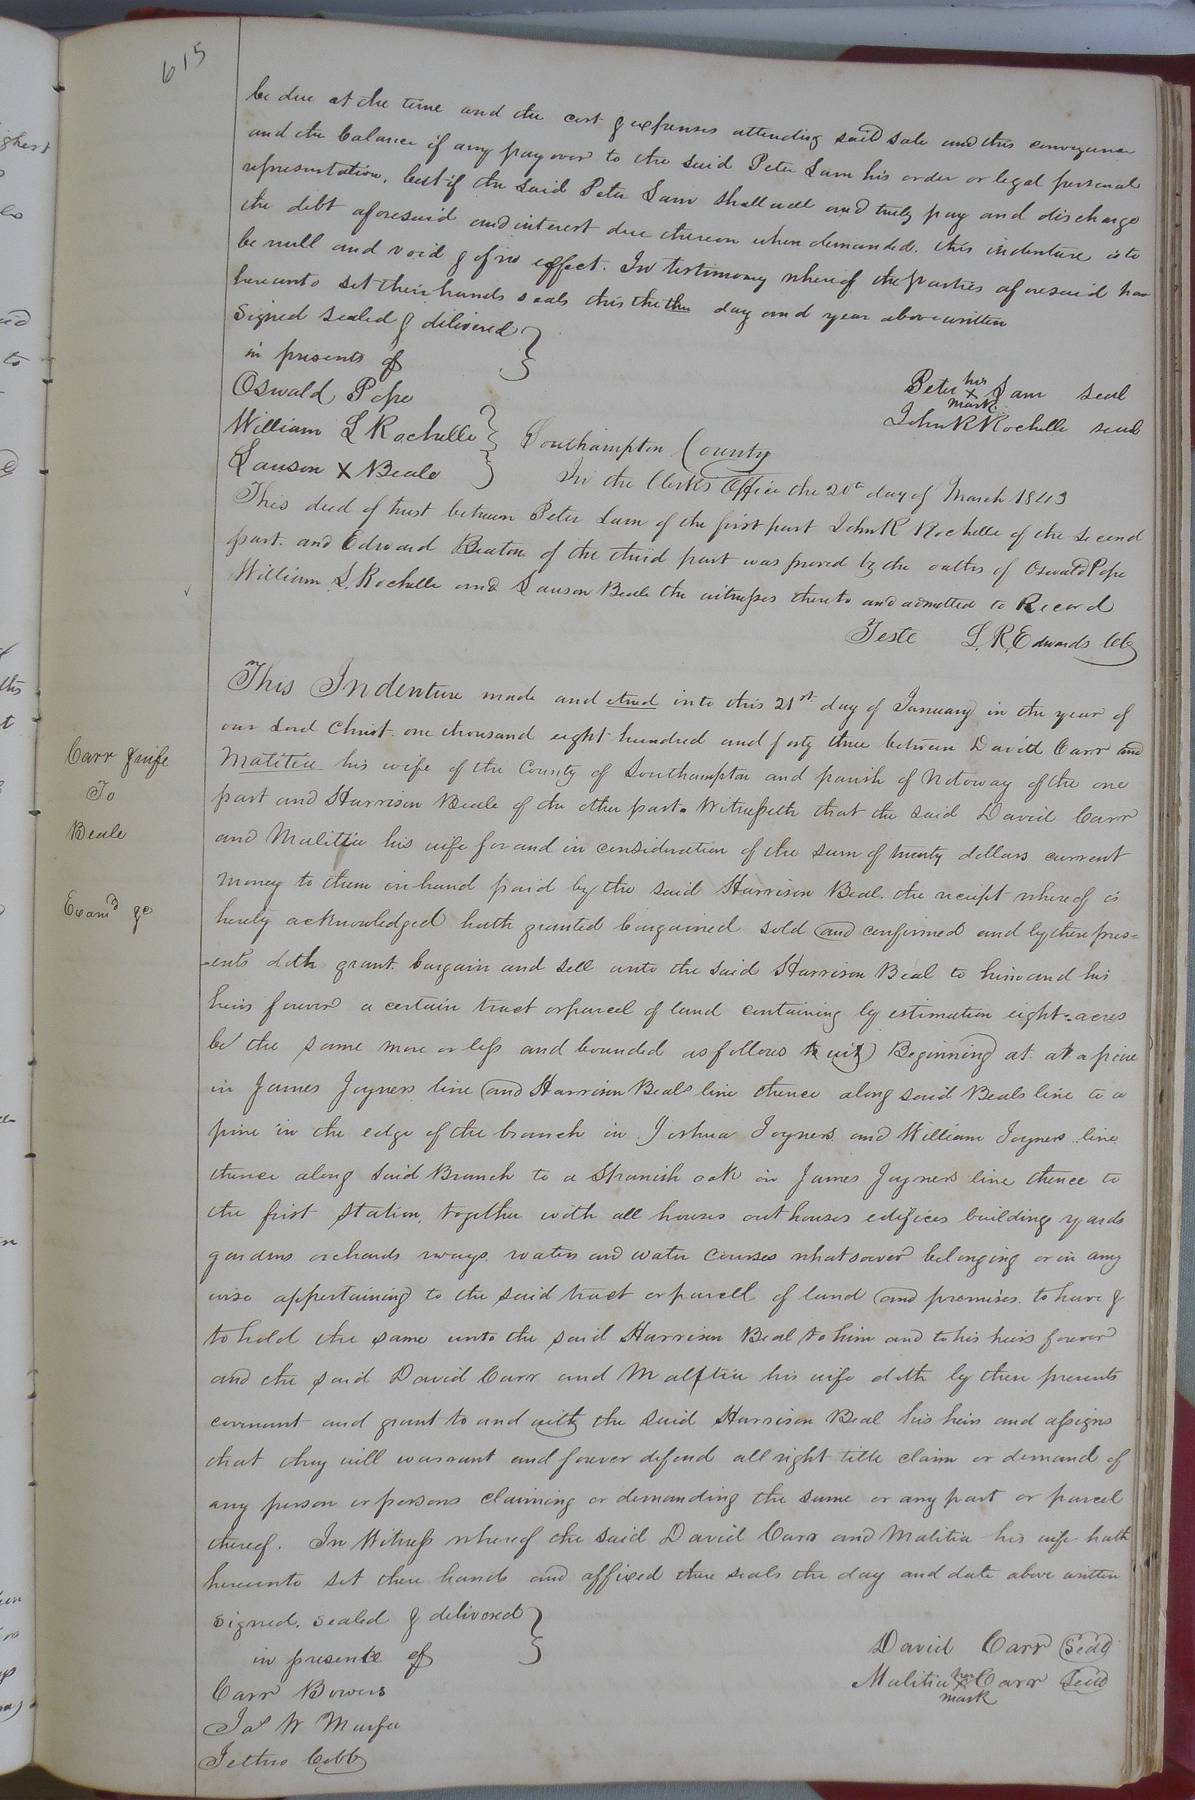 615
be due at the time and the cost & expenses attending said sale and this conveyance
and the balance if any pay over to the said Peter Sam his order or legal personal
representation. but if the said Peter Sam shall well and truly pay and discharge
the debt aforesaid and interest due thereon when demanded. this indenture is to
be null and void & of no effect. In testimony whereof the parties aforesaid have
hereunto set their hands seals this the day and year above written
Signed sealed & delivered
in presents of
Oswald Pope
Peter his x mark Sam seal
John R Rochelle seal
William L Rochelle
Lauson X Beale
Southampton County
In the Clerks Office the 20th day of March 1843
This deed of trust between Peter Sam of the first part John R Rochelle of the Second
part. and Edward Beaton of the third part was proved by the oaths of Oswald Pope
William L. Rochelle and Lauson Beale the witnesses thereto and admitted to Record
Teste L. R. Edwards Clk
Carr & wife
To
Beale
Examd &c
This Indenture made and etred into this 21st day of January in the year of
our Lord Christ. one thousand eight hundred and forty three between David Carr and
Malitia his wife of the County of Southampton and parish of Notoway of the one
part and Harrison Beale of the other part. Witnesseth that the said David Carr
and Malitia his wife for and in consideration of the sum of twenty dollars current
money to them in hand paid by the said Harrison Beal. the receipt whereof is
hereby acknowledged hath granted bargained sold and confirmed and by these pres=
-ents doth grant. bargain and sell unto the said Harrison Beal to him and his
heirs forever a certain tract or parcel of land containing by estimation eight=acres
be the same more or less and bounded as follows to wit) Beginning at. at a pine
in James Joyners line and Harrison Beals line thence along said Beals line to a
pine in the edge of the branch in Joshua Joyners and William Joyners line
thence along said Branch to a Spanish oak in James Joyners line thence to
the first Station, together with all houses out houses edifices buildings yards
gardens orchards ways. waters and water courses whatsoever belonging or in any
wise appertaining to the said tract or parcell of land and premises. to have &
to hold the same unto the said Harrison Beal to him and to his heirs forever
and the said David Carr and Malitia his wife doth by these presents
covenant and grant to and with the said Harrison Beal his heirs and assigns
that they will warrant and forever defend all right title claim or demand of
any person or persons claiming or demanding the same or any part or parcel
thereof. In Witness whereof the said David Carr and Malitia his wife hath
hereunto set there hands and affixed there seals the day and date above written
Signed. sealed & delivered
in presence of
David Carr seal
Malitia her x mark Carr seal
Carr Bowers
Jas W Murfee
Jethro Cobb